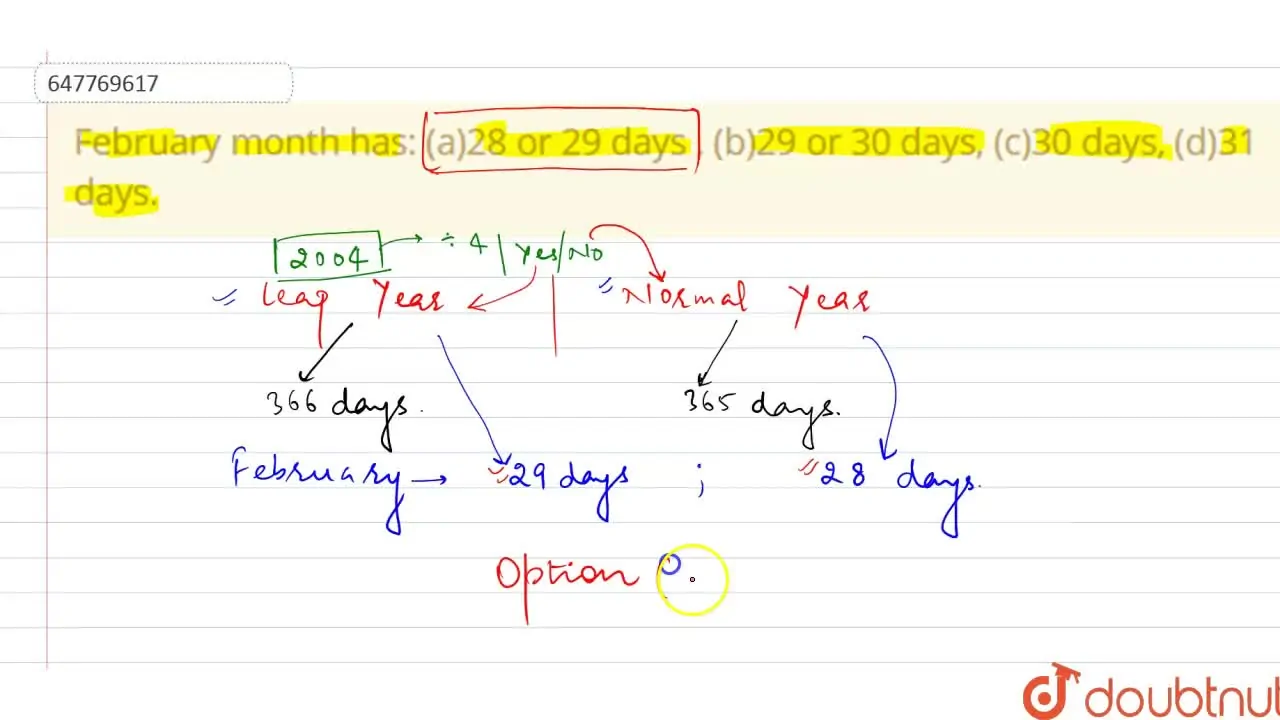 647769617
February month has: (a)28 or 29 days , (b)29 or 30 days, (c)30 days, (d)31
days.
2004 ÷ 4 Yes/No
Leap Year Normal Year
366 days. 365 days.
February → 29 days ; 28 days.
Option
doubtnut